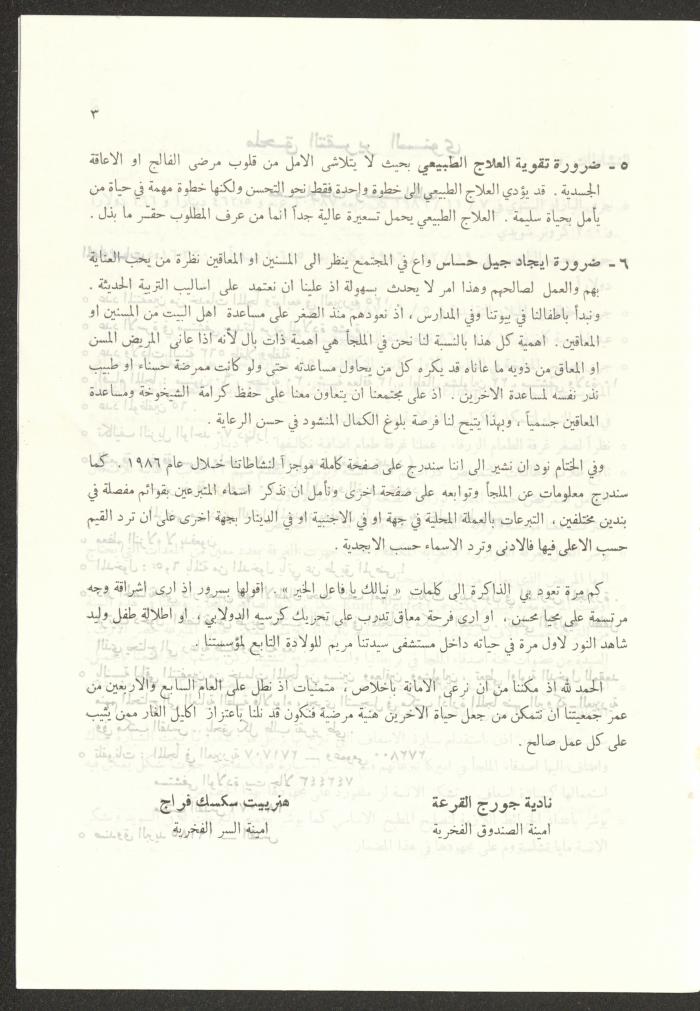 ٣
٥ ـ ضرورة تقوية العلاج الطبيعي بحيث لا يتلاشى الامل من قلوب مرضى الفالج او الاعاقة
الجسدية . قد يؤدي العلاج الطبيعي الى خطوة واحدة فقط نحو التحسن ولكنها خطوة مهمة في حياة من
يأمل بحياة سليمة . العلاج الطبيعي يحمل تسعيرة عالية جداً انما من عرف المطلوب حقّر ما بذل .
٦ ـ ضرورة ايجاد جيل حساس واع في المجتمع ينظر الى المسنين او المعاقين نظرة من يحب العناية
بهم والعمل لصالحهم وهذا امر لا يحدث بسهولة اذ علينا ان نعتمد على اساليب التربية الحديثة .
ونبدأ باطفالنا في بيوتنا وفي المدارس ، اذ نعودهم منذ الصغر على مساعدة اهل البيت من المسنين او
المعاقين . اهمية كل هذا بالنسبة لنا نحن في الملجأ هي اهمية ذات بال لأنه اذا عانى المريض المسن
او المعاق من ذويه ما عاناه قد يكره كل من يحاول مساعدته حتى ولو كانت ممرضة حسناء او طبيب
نذر نفسه لمساعدة الاخرين . اذ على مجتمعنا ان يتعاون معنا على حفظ كرامة الشيخوخة ومساعدة
المعاقين جسمياً ، وبهذا يتيح لنا فرصة بلوغ الكمال المنشود في حسن الرعاية .
وفي الختام نود ان نشير الى اننا سندرج على صفحة كاملة موجزاً لنشاطاتنا خلال عام ١٩٨٦ . كما
سندرج معلومات عن الملجأ وتوابعه على صفحة اخرى ونأمل ان نذكر اسماء المتبرعين بقوائم مفصلة في
بندين مختلفين ، التبرعات بالعملة المحلية في جهة او في الاجنبية او في الدينار بجهة اخرى على ان ترد القيم
حسب الاعلى فيها فالادنى وترد الاسماء حسب الابجدية .
كم مرة تعود بي الذاكرة الى كلمات « نيالك يا فاعل الخير » . اقولها بسرور اذ ارى اشراقة وجه
مرتسمة على محيا محسن ، او ارى فرحة معاق تدرب على تحريك كرسيه الدولابي ، او اطلالة طفل وليد
شاهد النور لاول مرة في حياته داخل مستشفى سيدتنا مريم للولادة التابع لمؤسستنا .
الحمد لله اذ مكننا من ان نرعى الامانة باخلاص ، متمنيات اذ نطل على العام السابع والاربعين من
عمر جمعيتنا ان نتمكن من جعل حياة الاخرين هنية مرضية فنكون قد نلنا باعتزاز اكليل الغار ممن يثيب
على كل عمل صالح .
نادية جورج القرعة
هنرييت سكسك فراج
امينة الصندوق الفخرية
امينة السر الفخرية